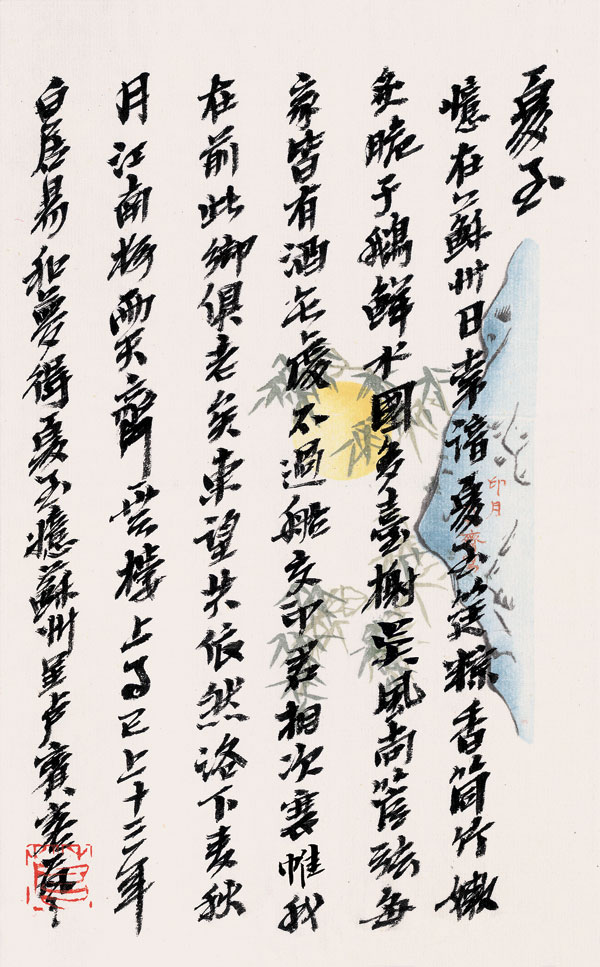 夏至
憶在蘇州日常諳夏至筵粽香筒竹嫩
炙脆子鵝鮮水國多臺榭吳風尚管弦每
家皆有酒无處不過船交印君相次褰帷我
在前此鄉俱老矣東望共依然洛下麦秋
月江南梅雨天齊雲樓上事已上十三年
白居易和夢得夏至憶蘇州呈卢賓客
印月